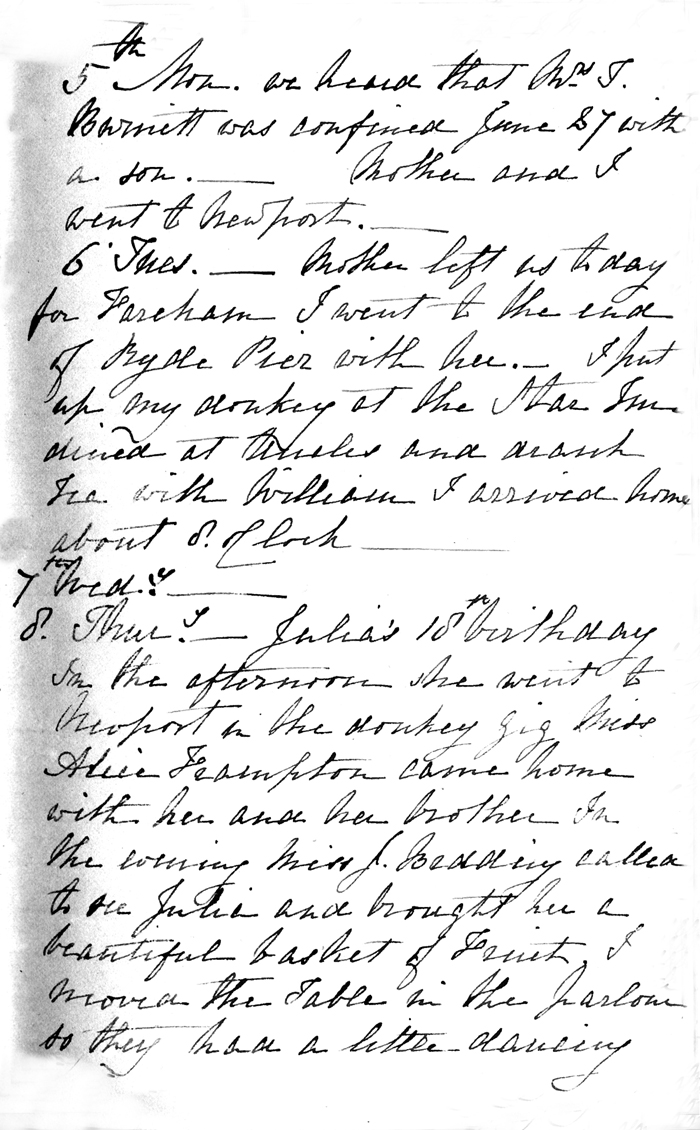 5th Mon. we heard that Mrs T.
Burnett was confined June 27 with
a son. — Mother and I
went to Newport. —
6 Tues. — Mother left us today
for Fareham I went to the end
of Ryde Pier with her. — I put
up my donkey at the Star Inn
dined at Uncles and drank
Tea with William I arrived home
about 8. O'Clock —
7th Wed.y —
8. Thur.y — Julia's 18th birthday
In the afternoon she went to
Newport in the donkey gig Miss
Alice Frampton came home
with her and her brother In
the evening Miss J. called
to see Julia and brought her a
beautiful basket of Fruit. I
moved the Table in the parlour
so they had a little dancing